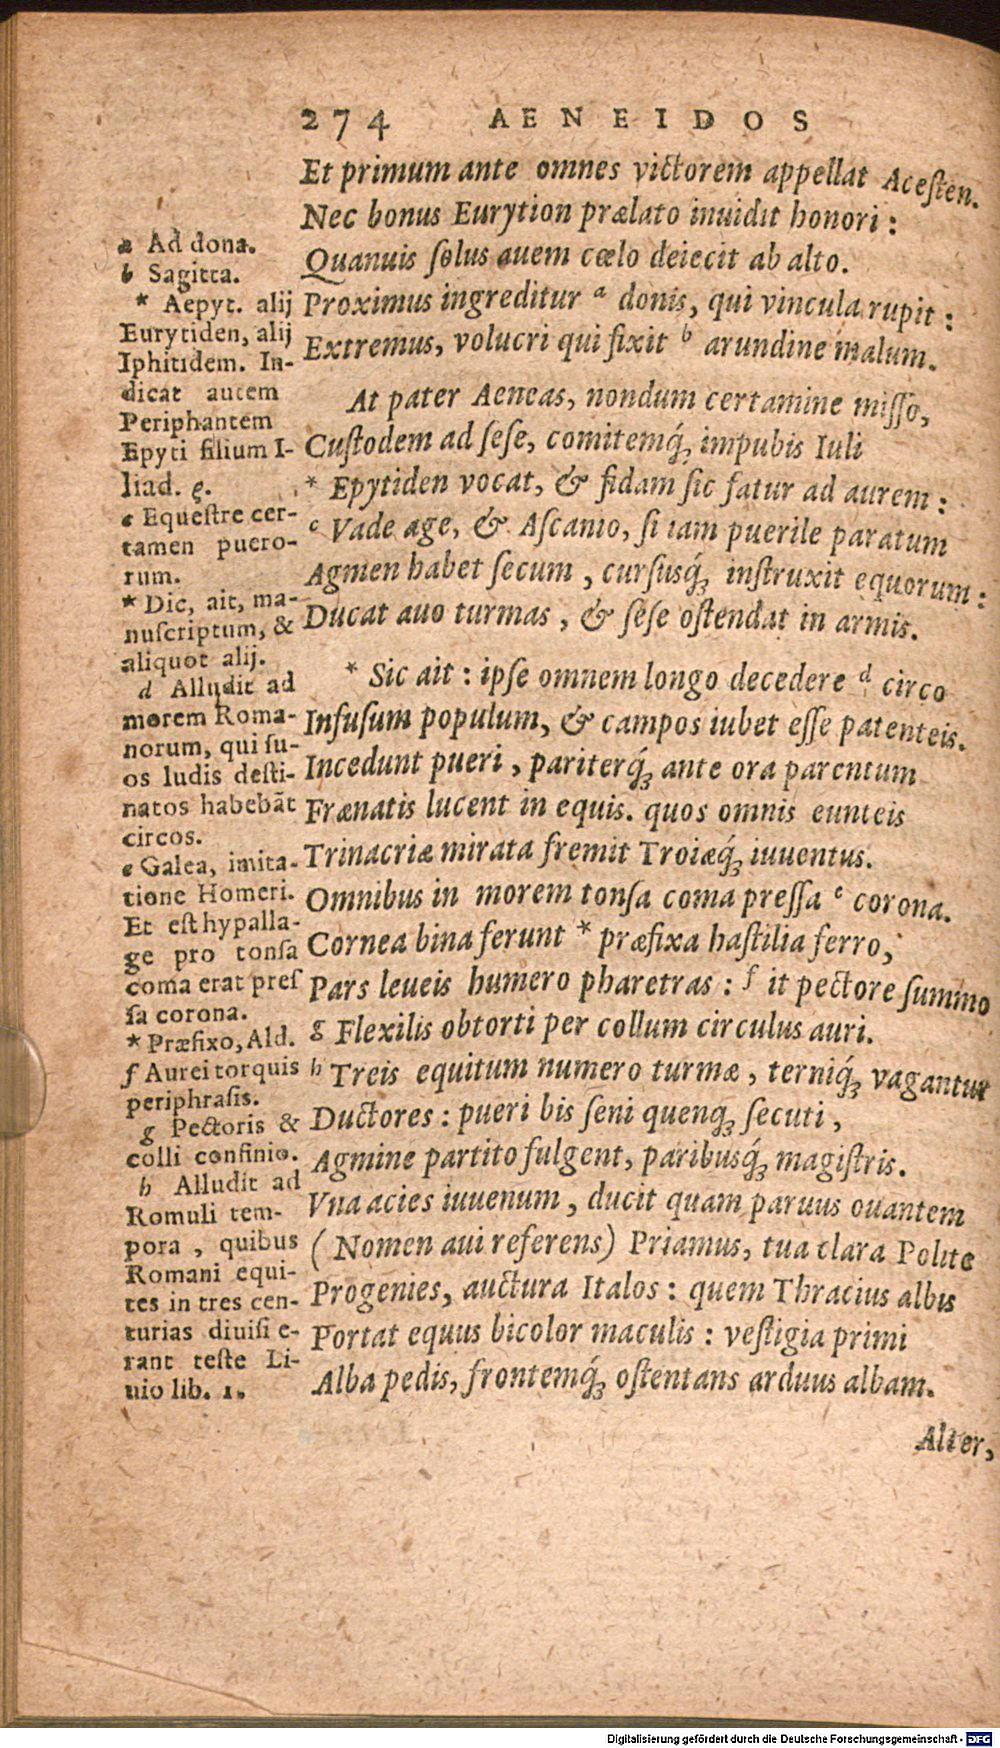 274 AENEIDOS
Et primum ante omnes victorem appellat Acesten.
Nec bonus Eurytion prælato inuidit honori:
Quanuis solus auem cœlo deiecit ab alto.
Proximus ingreditur a donis, qui vincula rupit:
Extremus, volucri qui fixit b arundine malum.
At pater Aeneas, nondum certamine misso,
Custodem ad sese, comitemq́; impubis Iuli
* Epytiden vocat, & fidam sic fatur ad aurem:
c Vade age, & Ascanio, si iam puerile paratum
Agmen habet secum, cursusq́; instruxit equorum:
Ducat auo turmas, & sese ostendat in armis.
* Sic ait: ipse omnem longo decedere d circo
Infusum populum, & campos iubet esse patenteis.
Incedunt pueri, pariterq́; ante ora parentum
Frænatis lucent in equis. quos omnis eunteis
Trinacriæ mirata fremit Troiæq́; iuuentus.
Omnibus in morem tonsa coma pressa e corona.
Cornea bina ferunt * præfixa hastilia ferro,
Pars leueis humero pharetras: f it pectore summo
g Flexilis obtorti per collum circulus auri.
h Treis equitum numero turmæ, terniq́; vagantur
Ductores: pueri bis seni quenq; secuti,
Agmine partito fulgent, paribusq́; magistris.
Vna acies iuuenum, ducit quam paruus ouantem
(Nomen aui referens) Priamus, tua clara Polite
Progenies, auctura Italos: quem Thracius albis
Portat equus bicolor maculis: vestigia primi
Alba pedis, frontemq́; ostentans arduus albam.
Alter,
a Ad dona.
b Sagitta.
* Aepyt. alij
Eurytiden, alij
Iphitidem. In-
dicat autem
Periphantem
Epyti filium I-
liad. ρ.
c Equestre cer-
tamen puero-
rum.
* Dic, ait, ma-
nuscriptum, &
aliquot alij.
d Alludit ad
morem Roma-
norum, qui su-
os ludis desti-
natos habebāt
circos.
e Galea, imita-
tione Homeri.
Et est hypalla-
ge pro tonsa
coma erat pres
sa corona.
* Præfixo, Ald.
f Aurei torquis
periphrasis.
g Pectoris &
colli confinio.
h Alludit ad
Romuli tem-
pora, quibus
Romani equi-
tes in tres cen-
turias diuisi e-
rant teste Li-
uio lib. 1.
Digitalisierung gefördert durch die Deutsche Forschungsgemeinschaft - DFG